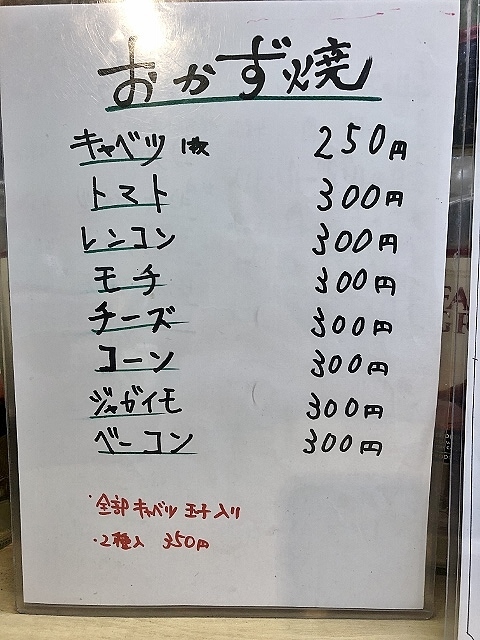 おかず焼
キャベツ 1枚 250円
トマト 300円
レンコン 300円
モチ 300円
チーズ 300円
コーン 300円
ジャガイモ 300円
ベーコン 300円
・全部キャベツ 玉子入り
・2種入 350円